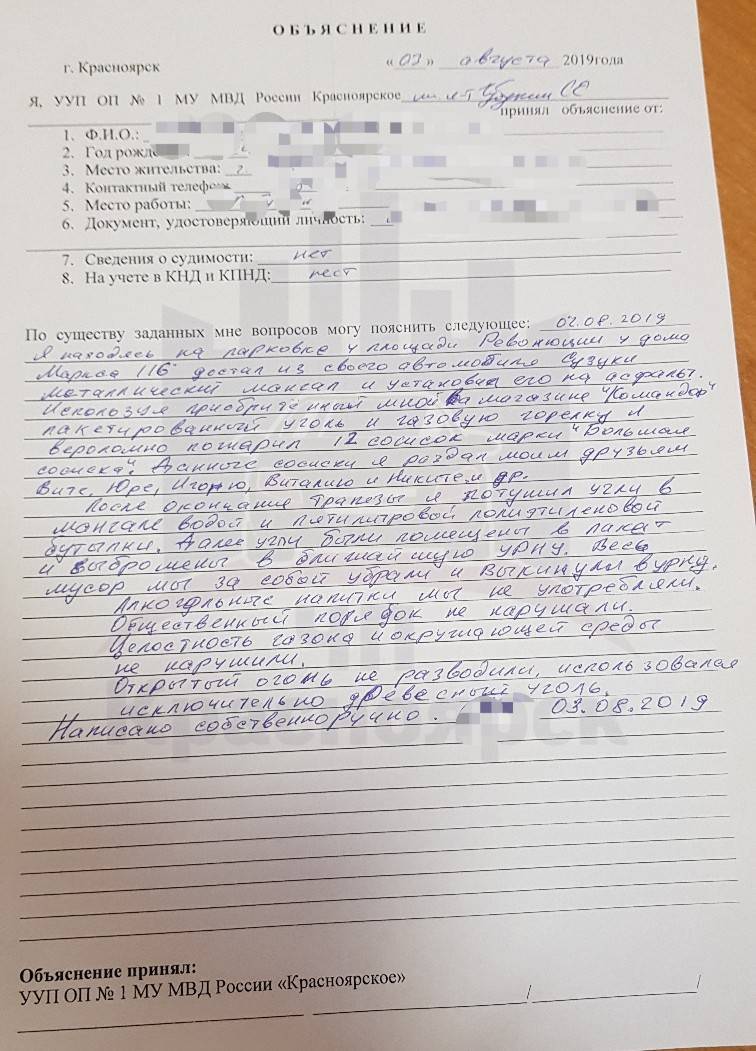 ОБЪЯСНЕНИЕ
г. Красноярск «03» августа 2019года
Я, УУП ОП № 1 МУ МВД России Красноярское
принял объяснение от:
1. Ф.И.О.:
2. Год рожде
3. Место жительства:
4. Контактный телефон
5. Место работы:
6. Документ, удостоверяющий личность:
7. Сведения о судимости: нет
8. На учете в КНД и КПНД:
По существу заданных мне вопросов могу пояснить следующее: 02.08.2019
Я находясь на парковке у площади Революции у дома
Маркса 116 достал из своего автомобиля Сузуки
металлический мангал и установил его на асфальт.
Используя приобритённый мной в магазине "Командор"
пакетированный уголь и газовую горелку я
вероломно пожарил 12 сосисок марки "Большая
сосиска". Данные сосиски я раздал моим друзьям
Вите, Юре, Игорю, Виталию и Никите и др.
После окончания трапезы я потушил угли в
мангале водой и пятилитровой полиэтиленовой
бутылки. Далее угли были помещены в пакет
и выброшены в ближайшую урну. Весь
мусор мы за собой убрали и выкинули в урну.
Алкогольные напитки мы не употребляли.
Общественный порядок не нарушали.
Целостность газона и окружающей среды
не нарушили.
Открытый огонь не разводили, использовался
исключительно древесный уголь.
Написано собственноручно. 03.08.2019
красноярск
Объяснение принял:
УУП ОП № 1 МУ МВД России «Красноярское»